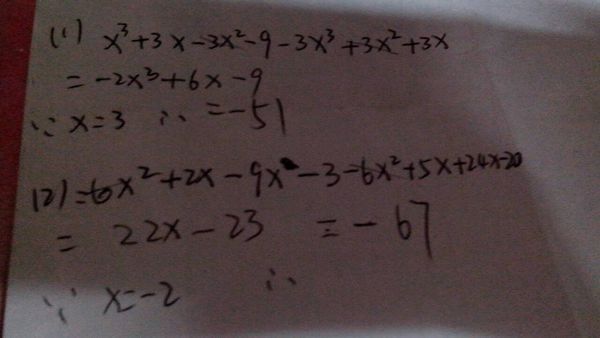 (1) x³+3x-3x²-9-3x³+3x²+3x
= -2x³+6x-9
∵ x=3 ∴ =-51
(2)=6x²+2x-9x-3-6x²+5x+24x-20
= 22x-23 =-67
∵ x=-2 ∴